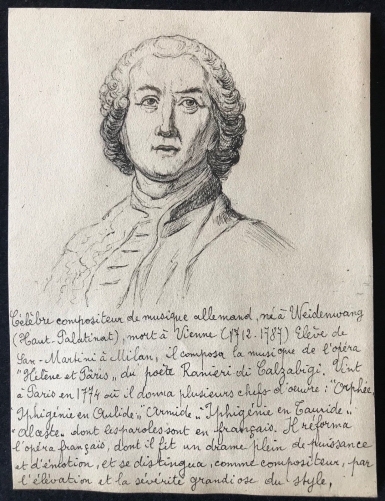 Célèbre compositeur de musique allemand, né à Weidenwang
(Haut-Palatinat), mort à Vienne (1712-1787) Elève de
San-Martini à Milan, il composa la musique de l'opéra
"Hélène et Pâris," du poëte Ranieri di Calzabigi. Vint
à Paris en 1774 où il donna plusieurs chefs-d'œuvre: "Orphée,
"Iphigénie en Aulide," "Armide," "Iphigénie en Tauride"
"Alceste" dont les paroles sont en français. Il réforma
l'opéra français, dont il fit un drame plein de puissance
et d'émotion, et se distingua, comme compositeur, par
l'élévation et la sévérité grandiose du style.